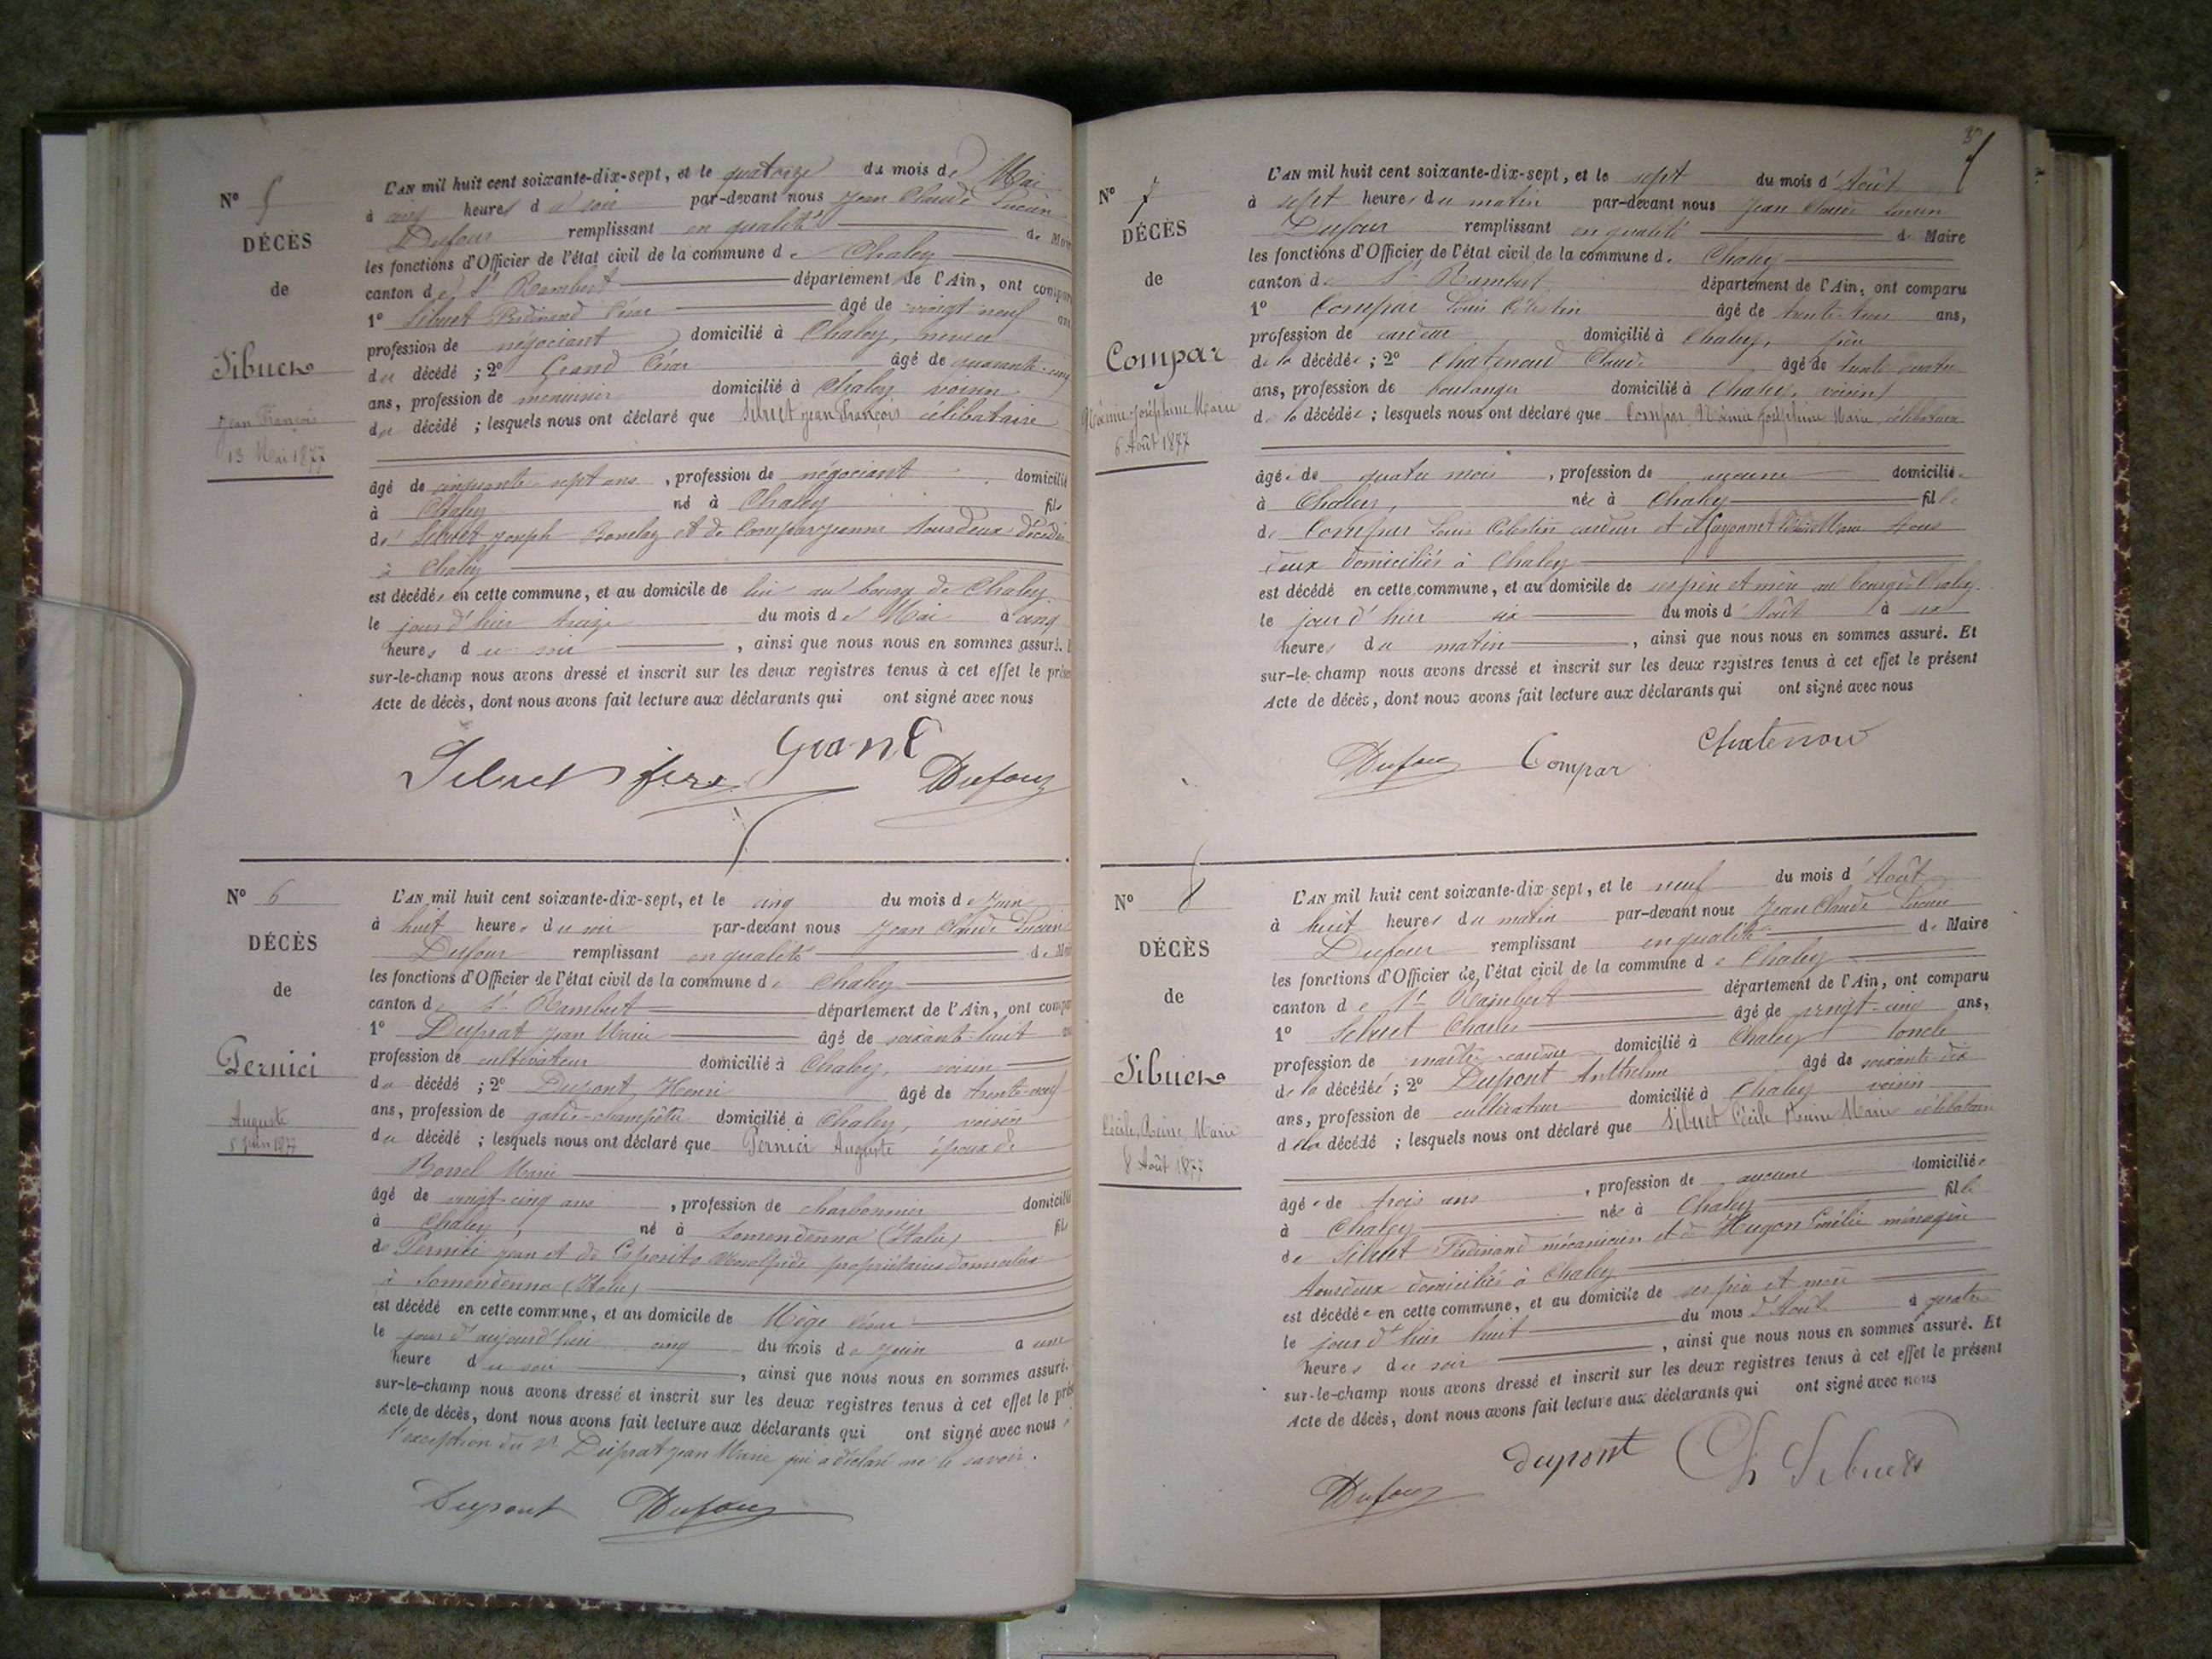 N° 5
DÉCÈS
de
Sibuet
Jean François
13 Mai 1877
L'AN mil huit cent soixante-dix-sept, et le quatorze du mois de Mai
à cinq heures du soir par-devant nous Jean Claude Lucien
Dufour remplissant en qualité de Mai
les fonctions d'Officier de l'état civil de la commune de Chaley
canton de St Rambert département de l'Ain, ont compar
1° Sibuet Ferdinand César âgé de vingt neuf ans
profession de négociant domicilié à Chaley, neveu
du décédé ; 2° Grand César âgé de quarante-cinq
ans, profession de menuisier domicilié à Chaley voisin
du décédé ; lesquels nous ont déclaré que Sibuet Jean François célibataire
âgé de cinquante-sept ans, profession de négociant domicilié
à Chaley né à Chaley fils
de Sibuet Joseph et de Compar Jeanne tous deux décédés
à Chaley
est décédé en cette commune, et au domicile de lui au bourg de Chaley
le jour d'hier treize du mois de Mai à cinq
heures du soir, ainsi que nous nous en sommes assuré. E
sur-le-champ nous avons dressé et inscrit sur les deux registres tenus à cet effet le prése
Acte de décès, dont nous avons fait lecture aux déclarants qui ont signé avec nous
Sibuet Grand Dufour
N° 6
DÉCÈS
de
Pernici
Auguste
5 Juin 1877
L'AN mil huit cent soixante-dix-sept, et le cinq du mois de Juin
à huit heures du soir par-devant nous Jean Claude Lucien
Dufour remplissant en qualité de Mai
les fonctions d'Officier de l'état civil de la commune de Chaley
canton de St Rambert département de l'Ain, ont compar
1° Duprat Jean Marie âgé de soixante-huit an
profession de cultivateur domicilié à Chaley, voisin
du décédé ; 2° Dupont Henri âgé de trente-neuf
ans, profession de garde-champêtre domicilié à Chaley, voisin
du décédé ; lesquels nous ont déclaré que Pernici Auguste époux de
Borrel Marie
âgé de vingt-cinq ans, profession de charbonnier domicilié
à Chaley, né à Somendenna (Italie) fils
de Pernici Jean et de Esposito propriétaires domiciliés
à Somendenna (Italie)
est décédé en cette commune, et au domicile de Mège César
le jour d'aujourd'hui cinq du mois de Juin à une
heure du soir, ainsi que nous nous en sommes assuré.
sur-le-champ nous avons dressé et inscrit sur les deux registres tenus à cet effet le prés
Acte de décès, dont nous avons fait lecture aux déclarants qui ont signé avec nous à
l'exception du Sr Duprat Jean Marie qui a déclaré ne le savoir.
Dupont Dufour
N° 7
DÉCÈS
de
Compar
Noémie Joséphine Marie
6 Août 1877
L'AN mil huit cent soixante-dix-sept, et le sept du mois d'Août
à sept heures du matin par-devant nous Jean Claude Lucien
Dufour remplissant en qualité de Maire
les fonctions d'Officier de l'état civil de la commune de Chaley
canton de St Rambert département de l'Ain, ont comparu
1° Compar Louis Célestin âgé de trente-trois ans,
profession de cardeur domicilié à Chaley, père
de la décédée ; 2° Chatenoud Claude âgé de trente-quatre
ans, profession de boulanger domicilié à Chaley, voisin
de la décédée ; lesquels nous ont déclaré que Compar Noémie Joséphine Marie célibataire
âgée de quatre mois, profession de aucune domiciliée
à Chaley, née à Chaley fille
de Compar Louis Célestin cardeur et de Marie tous
deux domiciliés à Chaley
est décédé en cette commune, et au domicile de ses père et mère au bourg de Chaley.
le jour d'hier six du mois d'Août à six
heures du matin, ainsi que nous nous en sommes assuré. Et
sur-le-champ nous avons dressé et inscrit sur les deux registres tenus à cet effet le présent
Acte de décès, dont nous avons fait lecture aux déclarants qui ont signé avec nous
Dufour Compar Chatenoud
N° 8
DÉCÈS
de
Sibuet
Cécile, Reine, Marie
8 Août 1877
L'AN mil huit cent soixante-dix-sept, et le neuf du mois d'Août
à huit heures du matin par-devant nous Jean Claude Lucien
Dufour remplissant en qualité de Maire
les fonctions d'Officier de l'état civil de la commune de Chaley
canton de St Rambert département de l'Ain, ont comparu
1° Sibuet Charles âgé de vingt-cinq ans,
profession de maître-cardeur domicilié à Chaley oncle
de la décédée ; 2° Dupont Anthelme âgé de soixante-dix
ans, profession de cultivateur domicilié à Chaley voisin
de la décédé ; lesquels nous ont déclaré que Sibuet Cécile Reine Marie célibataire
âgée de trois ans, profession de aucune domiciliée
à Chaley née à Chaley fille
de Sibuet Ferdinand mécanicien et de Hugon Emélie ménagère
tous deux domiciliés à Chaley
est décédée en cette commune, et au domicile de ses père et mère
le jour d'hier huit du mois d'Août à quatre
heures du soir, ainsi que nous nous en sommes assuré. Et
sur-le-champ nous avons dressé et inscrit sur les deux registres tenus à cet effet le présent
Acte de décès, dont nous avons fait lecture aux déclarants qui ont signé avec nous
Dufour Dupont Ch Sibuet